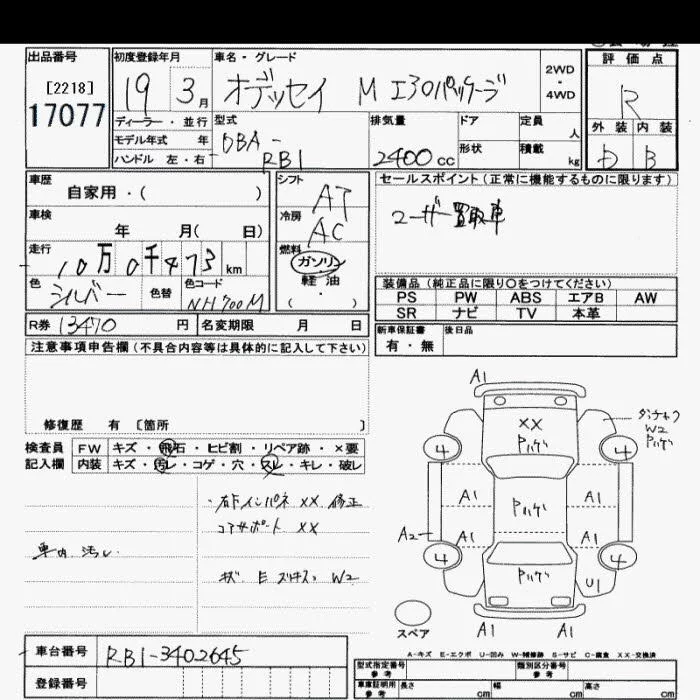 出品番号
[2218]
17077
初度登録年月
19 3月
車名・グレード
オデッセイ M エアロパッケージ
2WD
・
4WD
評価点
R
外装 内装
D B
ディーラー・並行
モデル年式 年
ハンドル 左・右
型式
DBA-
RB1
排気量
2400cc
ドア
形状
定員
人
積載
kg
車歴
自家用・( )
車検
年 月( 日)
走行
10万0千473km
色
シルバー
色替
色コード
NH700M
シフト
AT
冷房
AC
燃料
ガソリン
軽油
・
( )
セールスポイント(正常に機能するものに限ります)
ユーザー買取車
装備品(純正品に限り○をつけてください)
PS PW ABS エアB AW
SR ナビ TV 本革
新車保証書
有・無
後日品
R券 13470 円
名変期限 月 日
注意事項申告欄(不具合内容等は具体的に記入して下さい)
修復歴 有 [箇所 ]
検査員
記入欄
FW キズ・飛石・ヒビ割・リペア跡・×要
内装 キズ・汚レ・コゲ・穴・スレ・キレ・破レ
車内 汚レ
・右下インパネ XX 修正
コアサポート XX
キズ E ズキズ W2
A1
XX
4
4
A1
A1
A2
A1
A1
4
4
U1
A1
A1
W2
スペア
A-キズ E-エクボ U-凹み W-補修跡 S-サビ C-腐食 XX-交換済
車台番号 RB1-3402645
登録番号
型式指定番号
参考
類別区分番号
参考
車庫証明用
参考
長さ cm
幅 cm
高さ cm